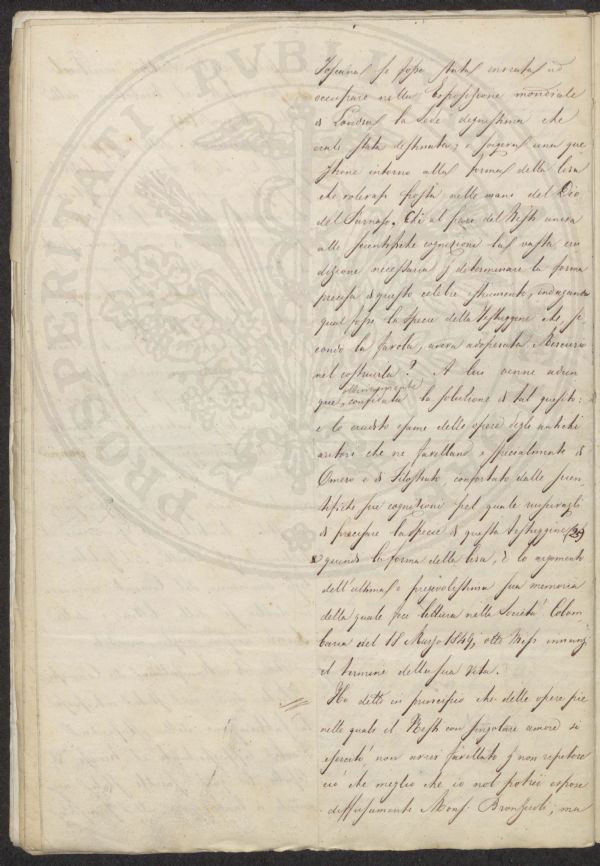 Toscana se fosse stata inviata ad
occupare nella Esposizione mondiale
di Londra la sede degnissima che
erale stata destinata; e sorgeva una que
stione intorno alla forma della lira
che volevasi posta nelle mani del Dio
del Parnaso. Chi al pare del Nesti univa
alle scientifiche cognizione la vasta eru
dizione necessaria p determinare la forma
precisa di questo celebre strumento, indagando
qual fosse la specie della Testuggine che, se
condo la favola, aveva adoperata Mercurio
nel costruirla? A lui venne adun
que ottimamente confidata la soluzione di tal quesito:
e lo erudito esame delle opere degli antichi
autori che ne favellano e specialmente di
Omero e di Filostrato confortato dalle scien
tifiche sue cognizioni pel quale
di precisare la specie di questa testuggine (25)
e quindi la forma della lira, è lo argomento
dell'ultima e pregevolissima sua memoria
della quale fece lettura nella Società Colom
baria del 18 Marzo 1849, otto Mesi innanzi
il termine della sua vita.
Ho detto in principio che delle opere pie
nelle quale il Nesti con singolare amore si
esercitò, non avrei favellato p non ripetere
ciò che meglio che io nol potrei espose
diffusamente Mons. Bronzuoli; ma
PRO PERITATI PVBLI